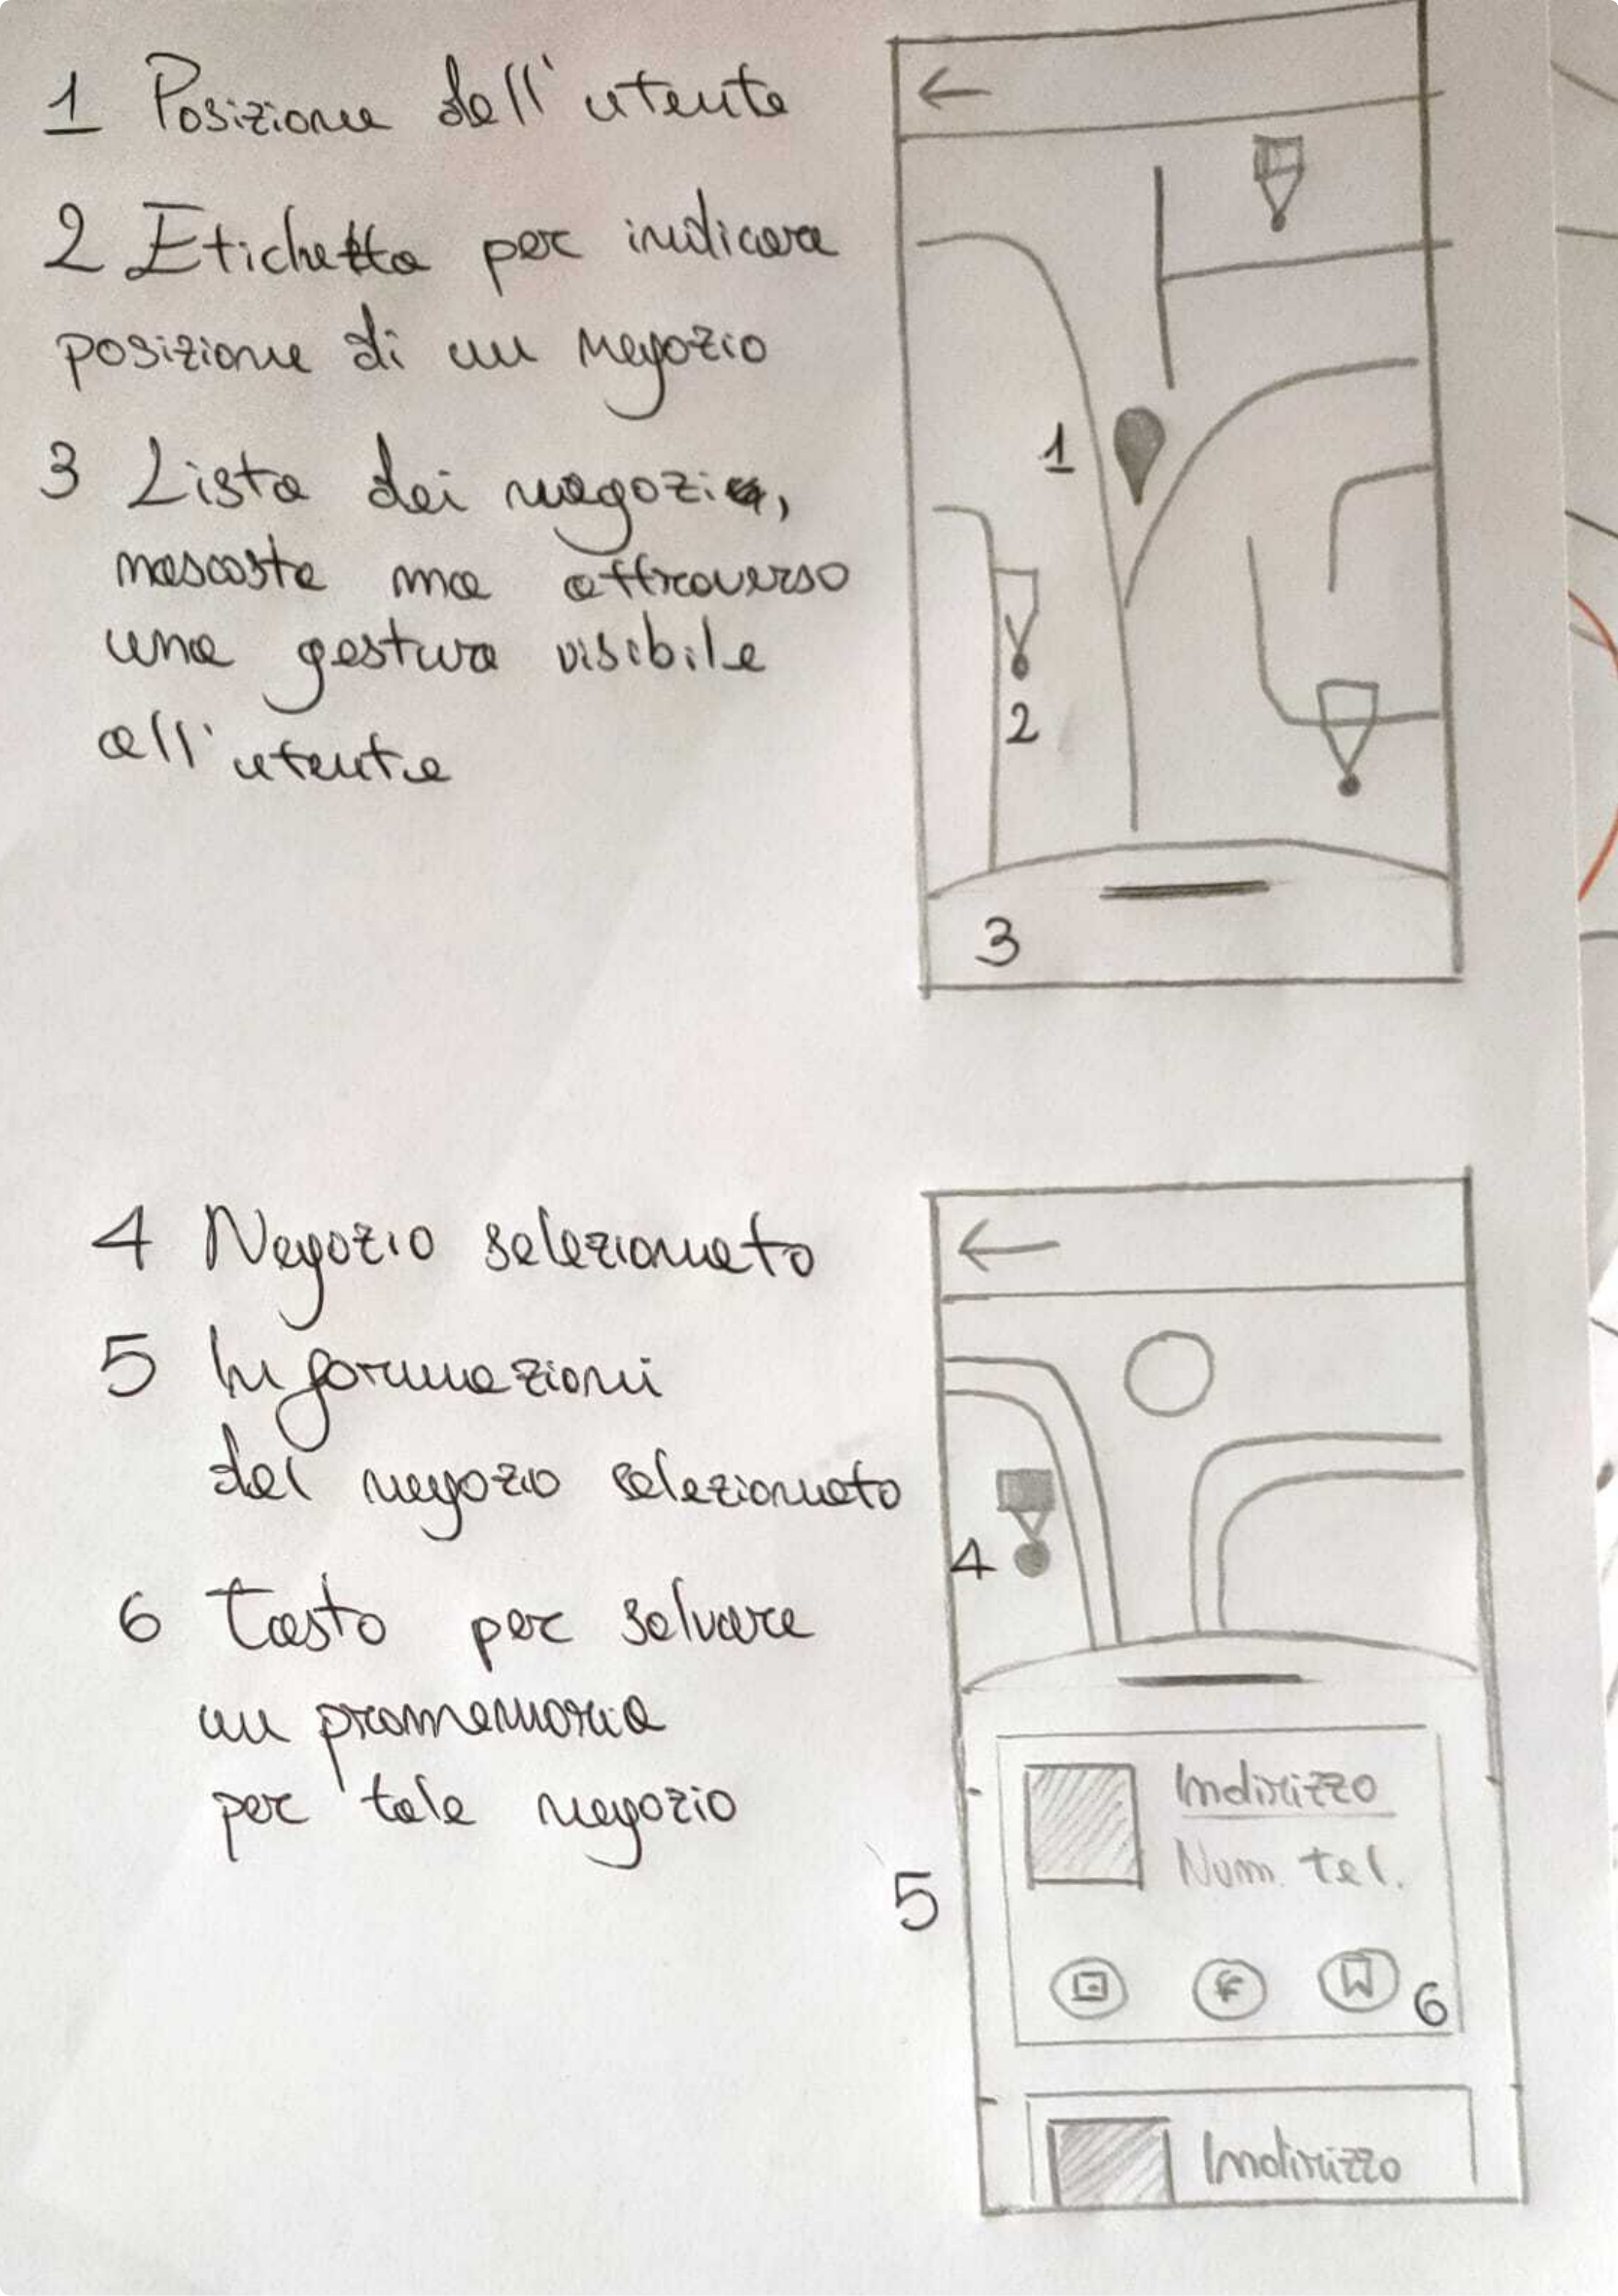 1 Posizione dell'utente
2 Etichetta per indicare
posizione di un negozio
3 Lista dei negozi,
nascosta ma attraverso
una gestura visibile
all'utente
1
2
3
4 Negozio selezionato
5 Informazioni
del negozio selezionato
6 Tasto per salvare
un promemoria
per tale negozio
4
5
Indirizzo
Num. tel.
6
Indirizzo